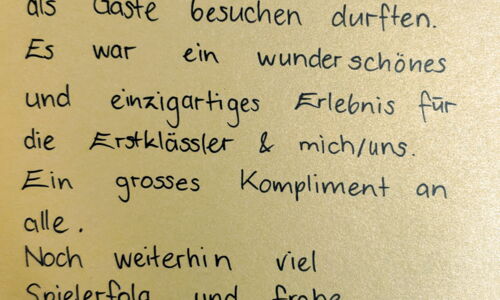 als Gäste besuchen durften.
Es war ein wunderschönes
und einzigartiges Erlebnis für
die Erstklässler & mich/uns.
Ein grosses Kompliment an
alle.
Noch weiterhin viel
Spielerfolg und frohe